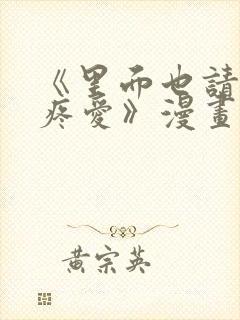 《里而也請
疼愛》漫畫
黃宗英